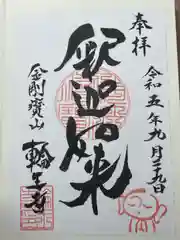 奉拝
令和五年九月二九日
釈迦如来
金剛寳山
輪王寺